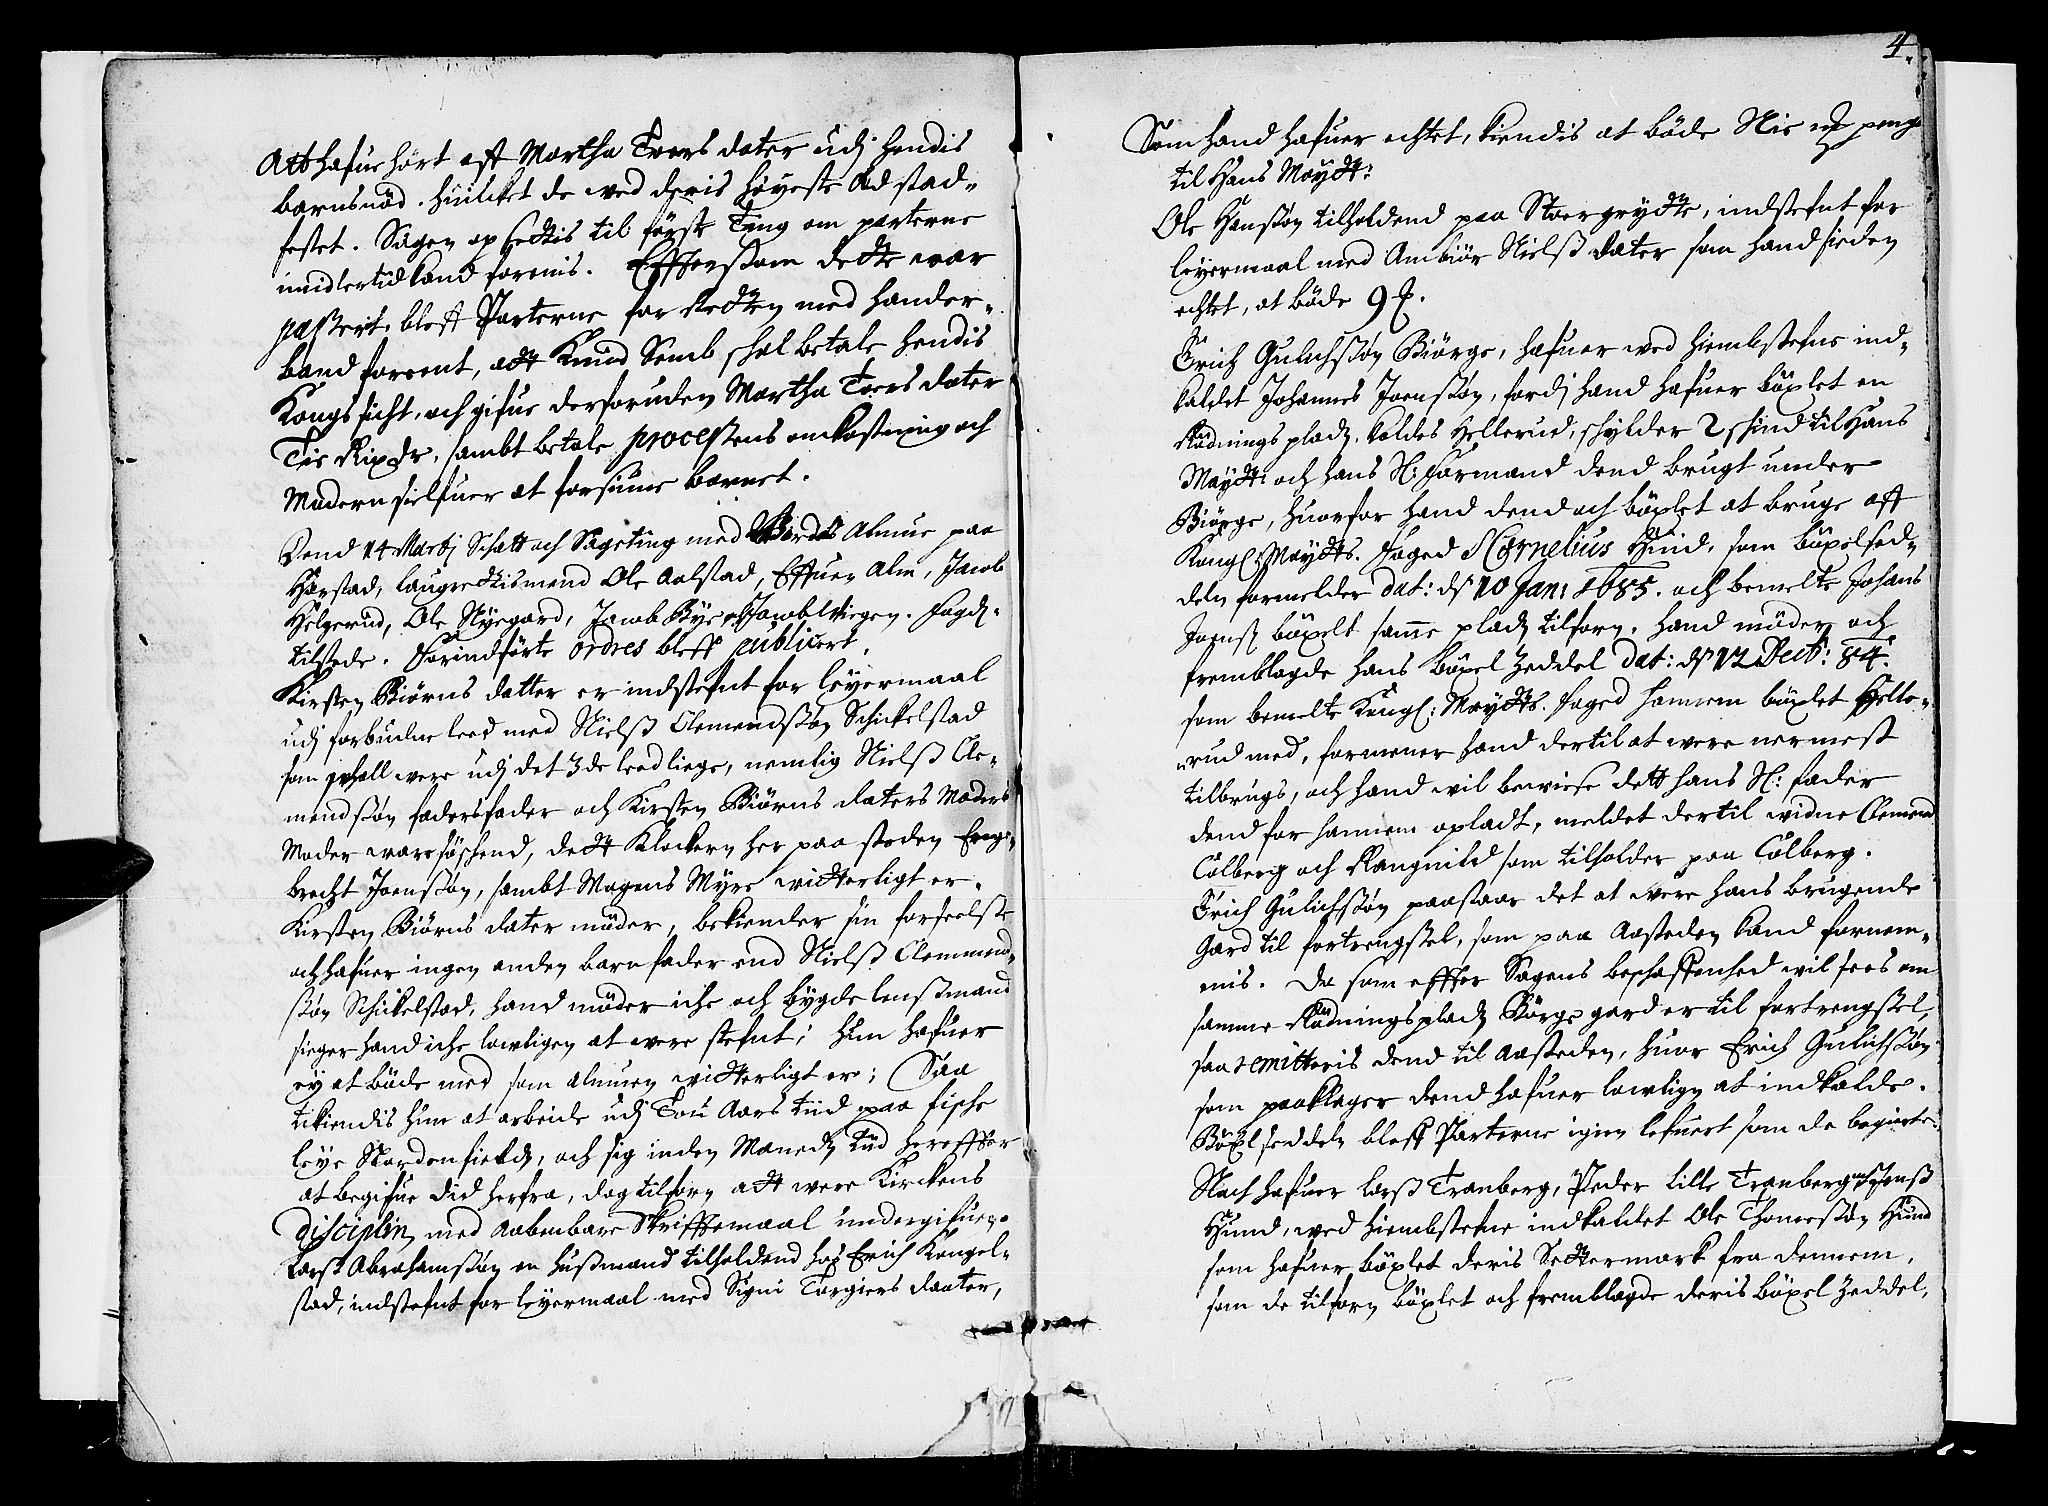 Att hafue hört aff Martha Tvers dater udj hendis
barnsnöd. huilcket de ved deris höyeste Æd stad-
festet. Sagen opsedtis til föyste Ting om parterne
imidlertid kand forenis. Effterssom dette war
passert, bleff Parterne for Retten med hander-
baand foreent, att Knud Semb schal betale hendis
Kongs sicht, och gifue derforuden Martha Tvers dater
Tie Rixdr, sambt betale processens omkostning och
Modern sielfuer at forsiune barnet.
Dend 14 Martj Schatt och Sageting med Almue paa
Hærstad, laugrettismend Ole Aalstad, Effuen Alm, Jacob
Helgerud, Ole Nyegard, Jacob Bye Wiegen. Fogd-
tilstede. Forindförte ordres bleff publicert.
Kirsten Biörns datter er indstefnt for leyermaal
udj forbudne leed med Nielss Clemendssön Schickelstad
som schall were udj det 3de leed liege, nemlig Nielss Cle-
mendssön fadersfader och Kirsten Biörns daters Moders
Moder ware söschend, dett Klockern her paa steden Enge-
brecht Joenssön, sambt Mogens Myre witterligt er.
Kirsten Biörns dater möder, bekiender sin forseelse
och hafuer ingen anden barnfader end Nielss Clemmend-
ssön Schickelstad, hand möder iche och bygde lenssmand
sieger hand iche lowligen at were stefnt; Hun hafuer
ey at böde med som almuen witterligt er; Saa
tilkiendis hun at arbeide udj Tou Aars tiid paa fische
leye Nordenfields, och sig inden Maaneds tiid hereffter
at begifue did herfra, dog tilforn att were Kirckens
disciplin, med aabenbare Skrifftemaal undergifuen.
Larss Abrahamssön en hussmand tilholdend hos Erich Kongel-
stad, indstefnt for leyermaal med Signi Torgiers daater,
4.
Som hand hafuer echtet, kiendis at böde Nie penge
til Hans Maydt:
Ole Hanssön tilholdend paa Stoergrydte, indstefnt for
leyermaal med Ambiör Nielss dater som hand sieden
echtet, at böde 9
Erich Gulichssön Biörge, hafuer wed hiembstefne ind-
kaldet Johannes Joenssön, fordj hand hafuer böxlet en
Rödnings plads. Kaldes Hellerud, schylder 2 schind til Hans
Maydt: och hans S: formand dend brugt under
Biörge, huorfor hand dend och böxlet at bruge aff
Kongl: Maydts. Foged Cornelius Hiud, som böxelsed-
deln formelder dat: ds 10 Jan: 1685. och bemelte Johans
Joenss böxelt samme plads tilforn. hand möder och
fremblagde hans böxel zeddel dat: ds 12 Decb: 84.
som bemelte Kongl: Maydts. foged hannem böxlet Helle-
rud med, formener hand dertil at were nermest
tilbrugs, och hand wil bewiese dett hans S: fader
dend for hannem opladt, meldet dertil widne Clemend
Colberg och Rangnild som tilholder paa Colberg.
Erich Gulichssön paastaar det at were hans brugende
Gard til fortrengssel, som paa Aasteden kand fornem-
mis. Da som effter Sagens beschaffenhed wil sees om
samme Rödningsplads Biörge gard er til fortrengssel,
saa remitteris dend til Aasteden, huor Erich Gulichssön
som paaklager dend hafuer lowlign at indkalde.
Böxel seddeln bleff Parterne igien lefuert som de begierte.
Noch hafuer Larss Tranberg, Peder Lille Tranberg Jenss
Hund, wed hiembstefne indkaldet Ole Thomessön Hund
som hafuer böxlet deris Settermark fra dennem,
som de tilforn böxlet och fremblagde deris böxel zeddel,